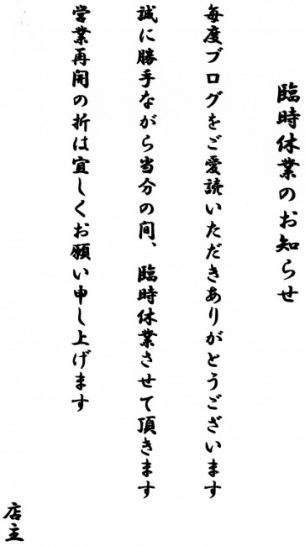 臨時休業のお知らせ
毎度ブログをご愛読いただきありがとうございます
誠に勝手ながら当分の間、臨時休業させて頂きます
営業再開の折は宜しくお願い申し上げます
店主